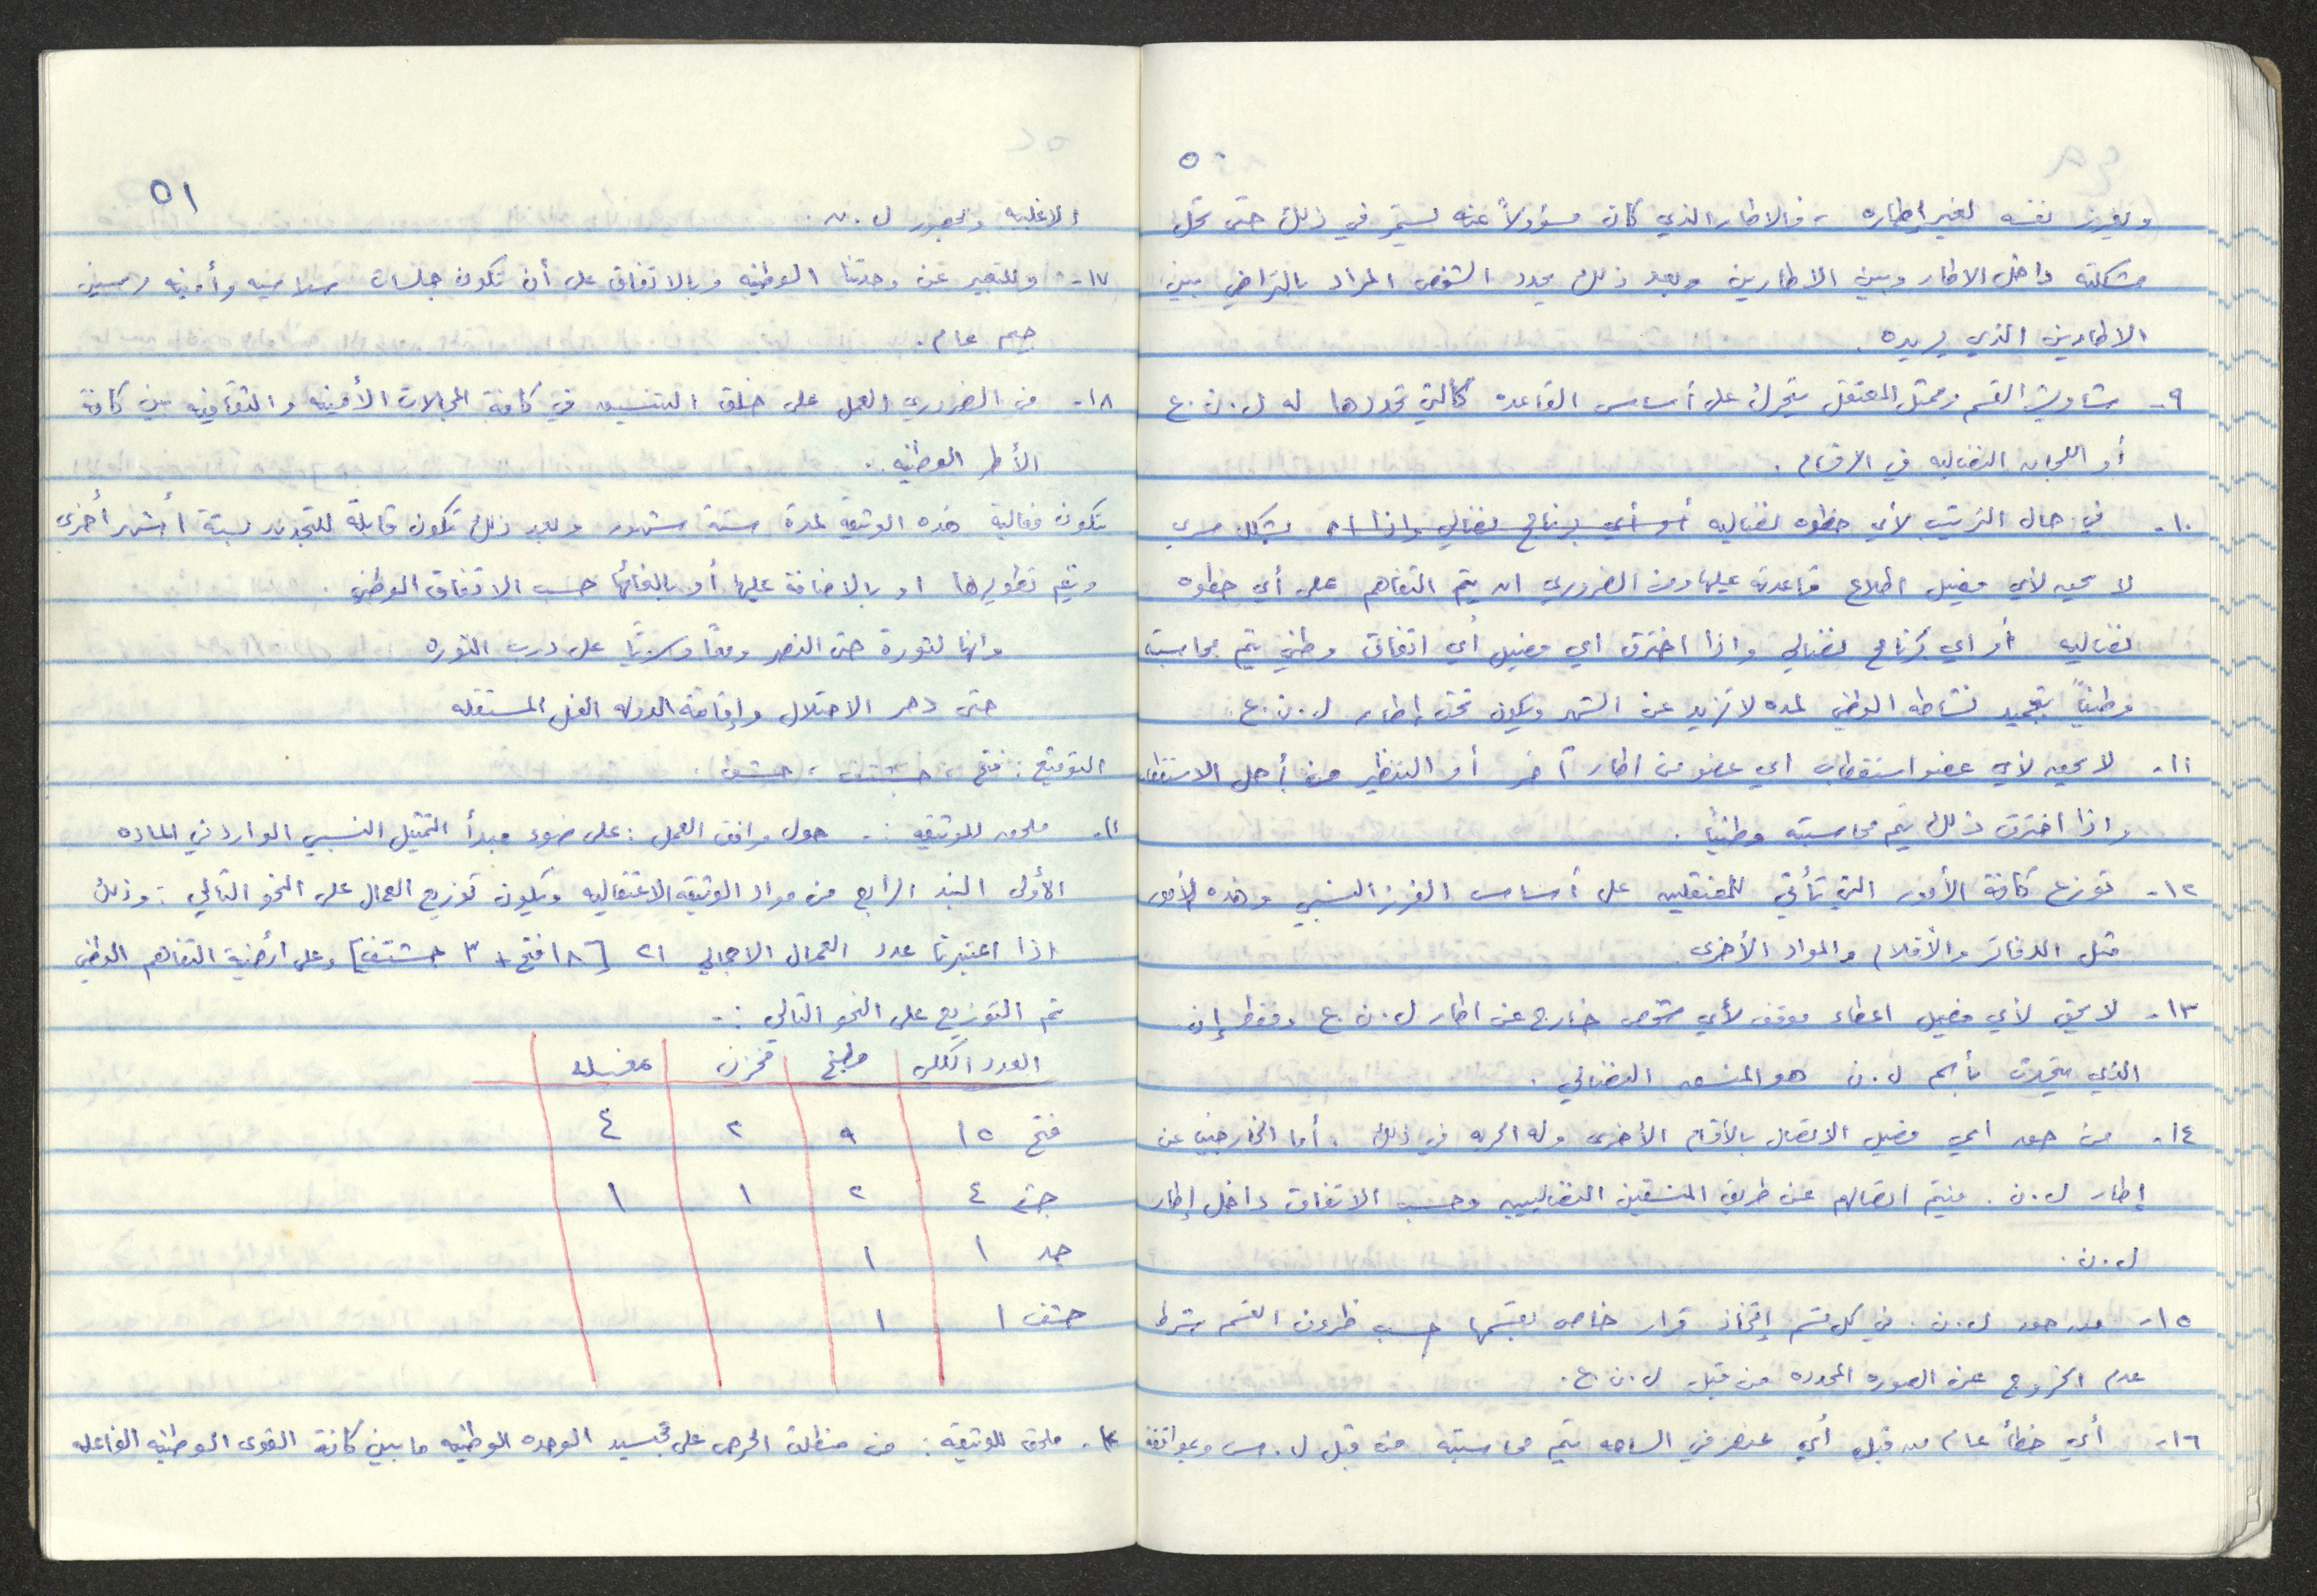 ٥٠
ويفرز نفسه لغير إطاره ، فالاطار الذي كان مسؤولاً عنه يستمر في ذلك حتى تحل
مشكلته داخل الاطار وبين الاطارين وبعد ذلك يحدد الشخص المراد بالتراضي بين
الاطارين الذي يريده .
٩- شاويش القسم وممثل المعتقل يتحرك على أساس القاعده كالتي تحددها له ل.ن.ع
أو اللجان النضاليه في الاقسام .
١٠- في حال الترتيب لأي خطوه نضاليه أو أي برنامج نضالي واذا بشكل سري
لا يحق لأي فصيل اطلاع قاعدته عليها ومن الضروري ان يتم التفاهم على أي خطوه
نضاليه أو اي برنامج نضالي واذا اخترق اي فصيل أي اتفاق وطني يتم محاسبته
وطنياً بتجميد نشاطه الوطني لمده لا تزيد عن الشهر ويكون تحت إطار ل.ن.ع.
١١- لا يحق لأي عضو استقطاب اي عضو من اطار آخر أو التنظير من أجل الاستقطاب
واذا اخترق ذلك يتم محاسبته وطنياً .
١٢- توزع كافة الأمور التي تأتي للمعتقلين على أساس الفرز النسبي وهذه الأمور
مثل الدفاتر والأقلام والمواد الأخرى .
١٣- لا يحق لأي فصيل اعطاء موقف لأي شخص خارج عن اطار ل.ن.ع وفقط إن
الذي يتحدث بأسم ل.ن هو المنسق النضالي .
١٤- من حق اي فصيل الاتصال بالأقسام الأخرى وله الحريه في ذلك . أما الخارجين عن
إطار ل.ن. فيتم اتصالهم عن طريق المنسقين النضاليين وحسب الاتفاق داخل إطار
ل.ن.
١٥- من حق ل.ن. في كل قسم إتخاذ قرار خاص بقسمها حسب ظروف القسم شرط
عدم الخروج عن الصوره المحدده من قبل ل.ن.ع.
١٦- أي خطأ عام من قبل أي عنصر في الساحه يتم محاسبته من قبل ل. وبموافقة
٥١
الاغلبيه وبحضور ل.ن.
١٧- وللتعبير عن وحدتنا الوطنيه وبالاتفاق على أن تكون جلسات وأمنيه
عام.
١٨- من الضروري العمل على خلق التنسيق في كافة المجالات الأمنيه والثقافيه بين كافة
الأطر الوطنيه .
تكون فعالية هذه الوثيقة لمدة ستة شهور وبعد ذلك تكون قابلة للتجديد لستة أشهر أخرى
ويتم تطويرها او بالاضافة عليها أو بالغائها حسب الاتفاق الوطني .
وانها لثورة حتى النصر ومعاً وسويّا على درب الثوره
حتى دحر الاحتلال وإقامة الدوله المستقله
التوقيع : فتح ، ، حشف .
١١- ملحق للوثيقه :- حول مرافق العمل : على ضوء مبدأ التمثيل النسبي الوارد في الماده
الأولى البند الرابع من مواد الوثيقه الاعتقاليه ويكون توزيع العمال على النحو التالي : وذلك
اذا اعتبرنا عدد العمال الاجمالي ٢١ [١٨ فتح + ٣ ] وعلى أرضية التفاهم الوطني
تم التوزيع على النحو التالي :-
العدد الكلي مطبخ مخزن مغسله
فتح ١٥ ٩ ٢ ٤
٤ ٢ ١ ١
جد ١ ١
حشف ١ ١
ملحق للوثيقة : من منطلق الحرص على تجسيد الوحده الوطنيه ما بين كافة القوى الوطنيه الفاعله